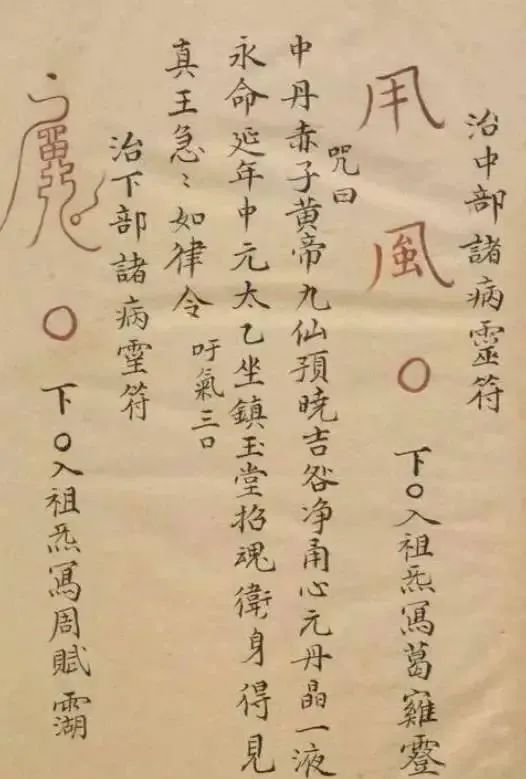 治中部諸病靈符
風
〇
下〇入祖炁冩葛雞
咒曰
中丹赤子黄帝九仙預曉吉咎净甬心元丹晶一液
永命延年中元太乙坐鎮玉堂招魂衛身得見
真王急〻如律令
吁氣三口
治下部諸病霊符
〇
下〇入祖炁冩周賦